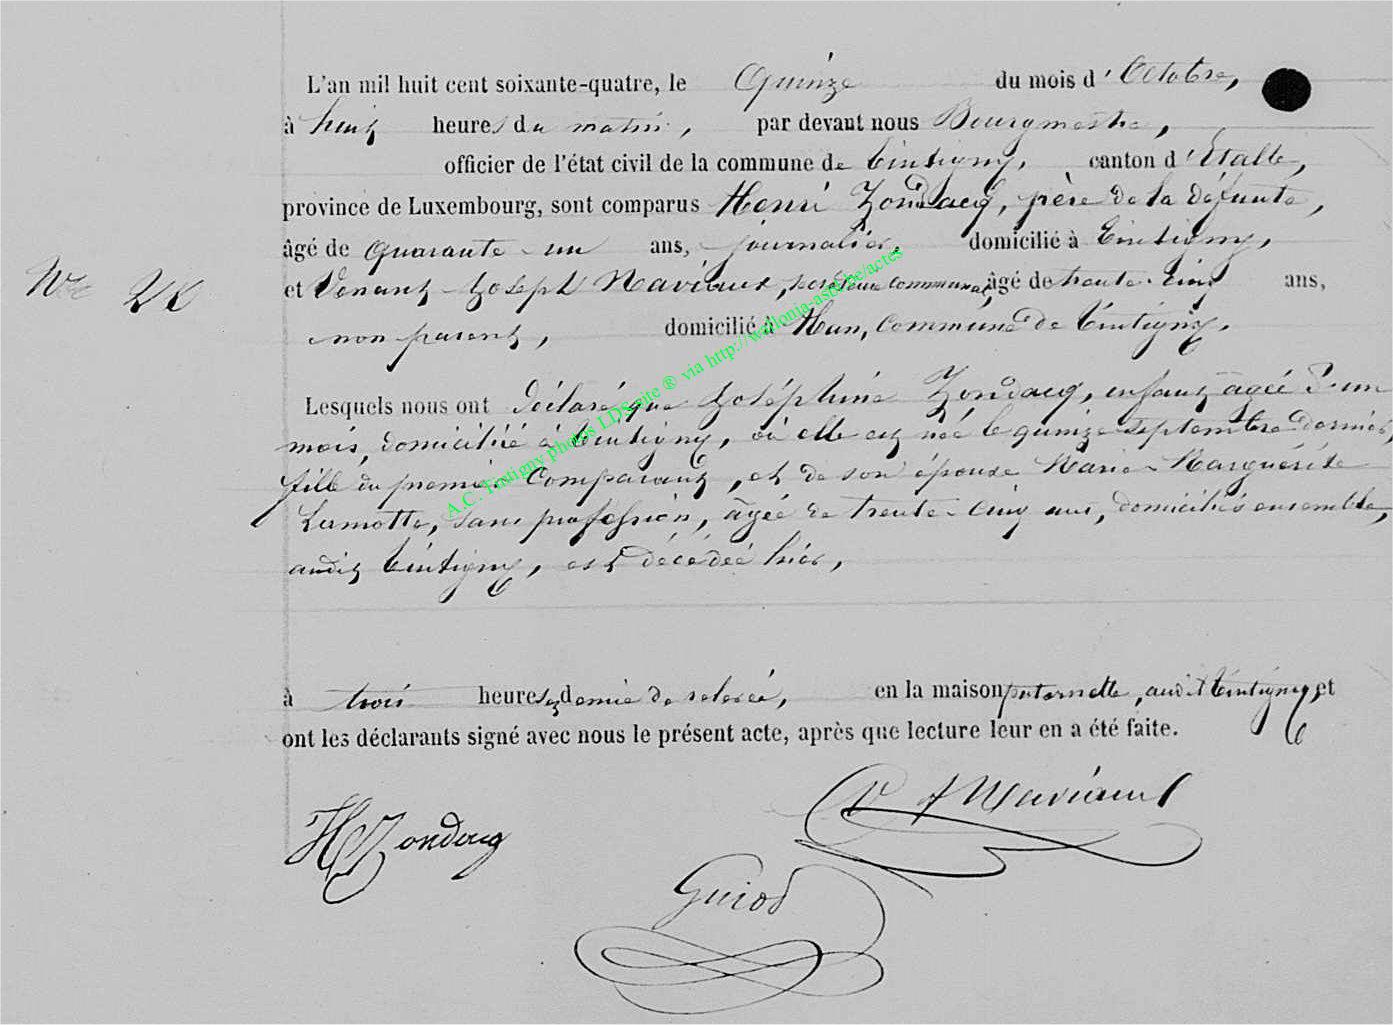 L'an mil huit cent soixante-quatre, le Quinze du mois d'Octobre,
à huit heures du matin, par devant nous Bourgmestre,
officier de l'état civil de la commune de Tintigny, canton d'Etalle,
province de Luxembourg, sont comparus Henri Zondacq, père de la défunte,
âgé de quarante-un ans, journalier, domicilié à Tintigny,
et Venant Joseph Naviaux, secrétaire communal, âgé de trente-cinq ans,
non parent, domicilié à Han, Commune de Tintigny.
Lesquels nous ont déclaré que Joséphine Zondacq, enfant agée d'un
mois, domiciliée à Tintigny, où elle est née le quinze septembre dernier,
fille du premier Comparant, et de son épouse Marie-Marguerite
Lamotte, sans profession, âgée de trente-cinq ans, domiciliés ensemble,
audit Tintigny, est décédée hier,
à trois heures et demie de relevée, en la maison paternelle, audit Tintigny, et
ont les déclarants signé avec nous le présent acte, après que lecture leur en a été faite.
H Zondacq
V J Naviaux
Guiod
A.C. Tintigny photos LDS site ® via http://wallonia-asbl.be/actes